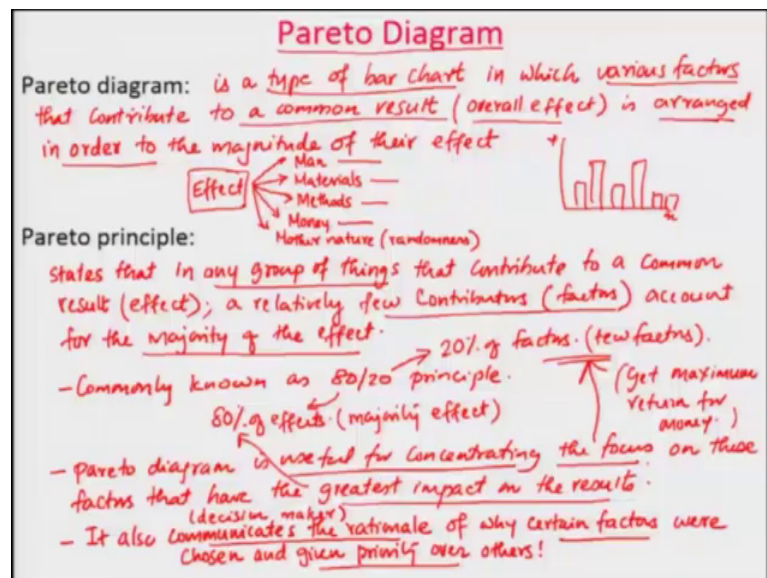 Pareto Diagram
Pareto diagram: is a type of bar chart in which various factors
that contribute to a common result (overall effect) is arranged
in order to the magnitude of their effect
Effect
Man
Materials
Methods
Money
Mother nature (randomness)
Pareto principle:
states that in any group of things that contribute to a common
result (effect); a relatively few Contributors (factors) account
for the majority of the effect.
20% of factors. (few factors).
- Commonly known as 80/20 principle.
(Get maximum
return for
money.)
80% of effects. (majority effect)
- Pareto diagram is useful for concentrating the focus on those
factors that have the greatest impact on the results.
(decision maker)
- It also communicates the rationale of why certain factors were
chosen and given priority over others!